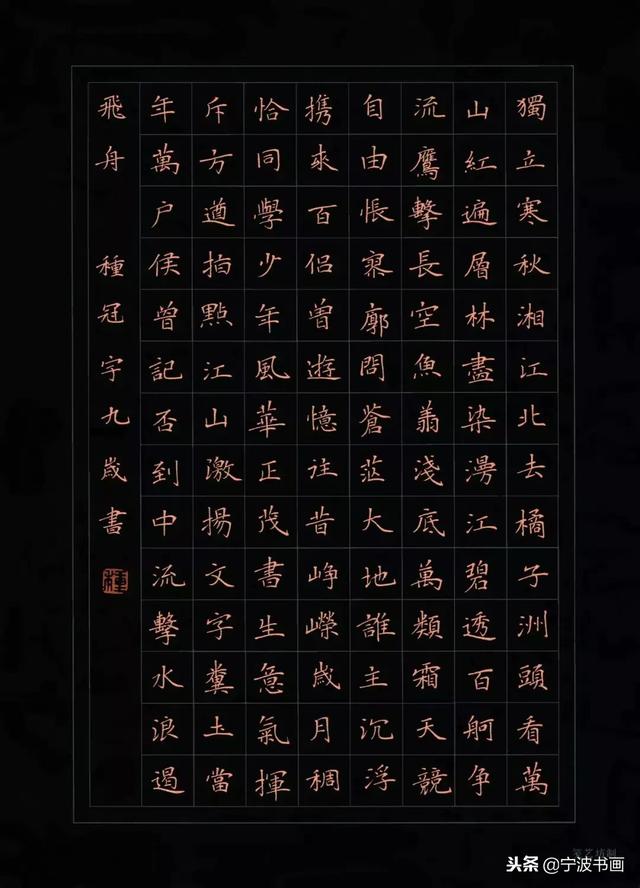 獨立寒秋湘江北去橘子洲頭看萬
山紅遍層林盡染漫江碧透百舸争
流鷹擊長空魚翔淺底萬類霜天競
自由悵寥廓問蒼茫大地誰主沉浮
携來百侣曾遊憶往昔崢嶸歲月稠
恰同學少年風華正茂書生意氣揮
斥方遒指點江山激揚文字糞土當
年萬户侯曾記否到中流擊水浪遏
飛舟 種冠宇九歲書
種
头条@宁波书画